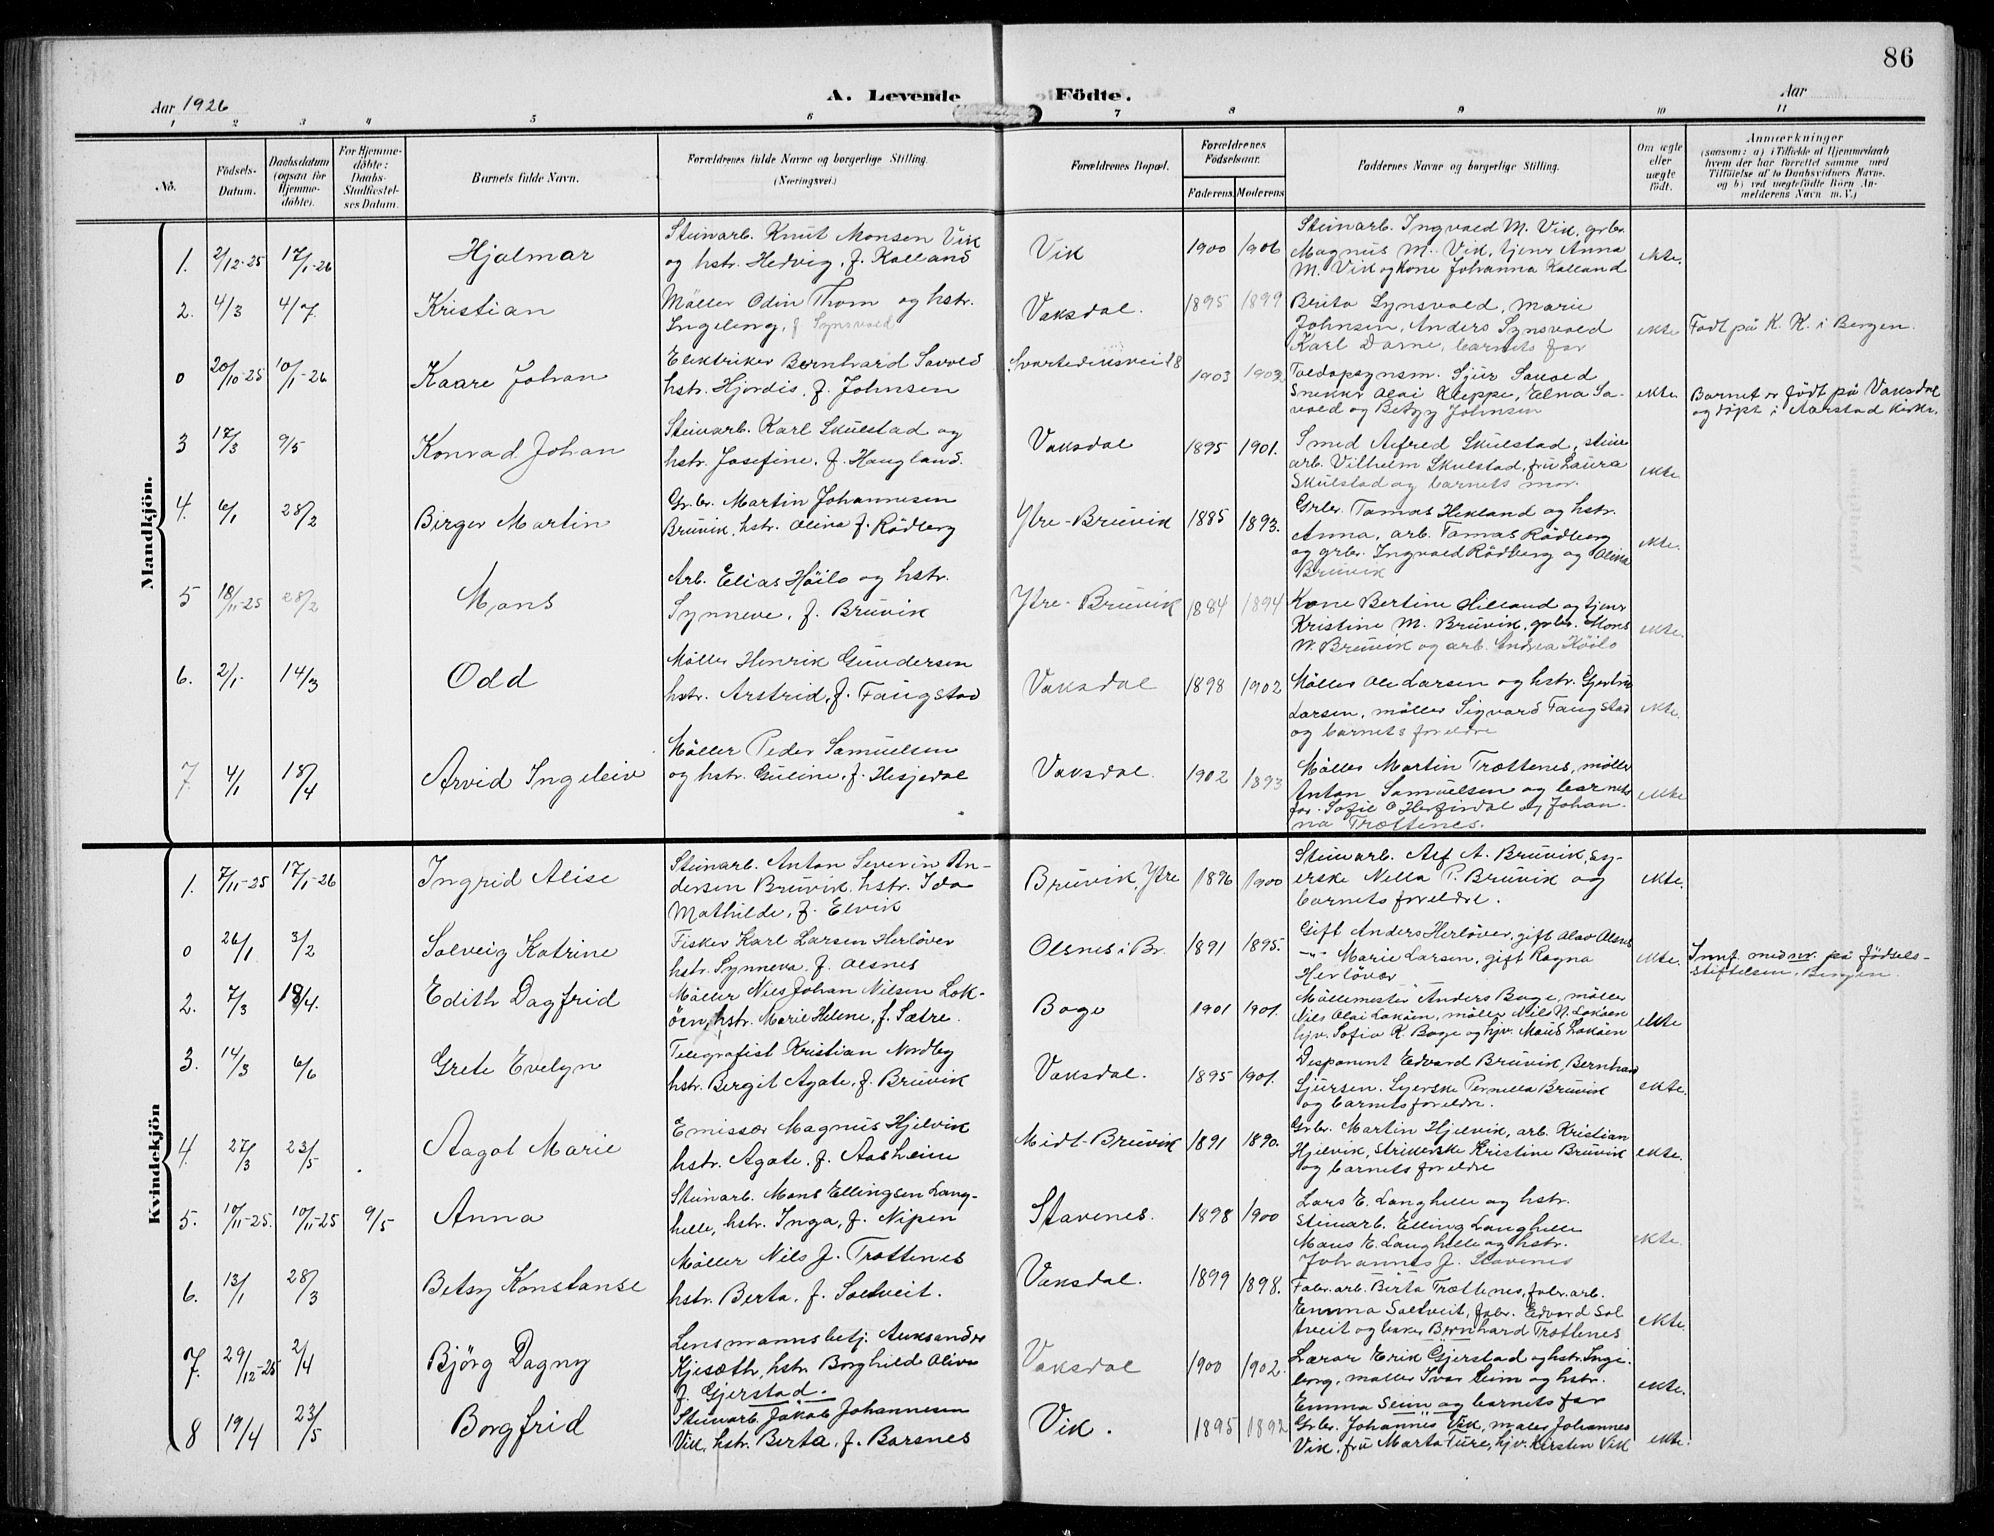 86
Aar 1926
A. Levende Födte.
Aar
1 2 3 4 5 6 7 8 9 10 11
No.
Födsels-Datum.
Daabsdatum (ogsaa for Hjemme-döbte).
For Hjemme-döbte: Daabs-Stadfæstel-ses Datum.
Barnets fulde Navn.
Forældrenes fulde Navne og borgerlige Stilling. (Næringsvei.)
Forældrenes Bopæl.
Forældrenes Födselsaar.
Faderens Moderens
Faddernes Navne og borgerlige Stilling.
Om ægte eller uægte födt.
Anmærkninger
(saasom: a) i Tilfælde af Hjemmedaab
hvem der har forrettet samme, med
Tilföielse af to Daabsvidners Navne.
og b) ved uægtefödte Börn An-
melderens Navn m. V.)
Mandkjön.
1. 2/12-25 17/1-26 Hjalmar
Steinarb. Knut Monsen Vik
og hstr. Hedvig, f. Kalland
Vik 1900 1906
Steinarb. Ingvald M. Vik, grbr.
Magnus M. Vik, tjener Anna
M. Vik og kone Johanna Kalland
ekte.
2. 4/3 4/7 Kristian
Möller Odin Thom og hstr.
Ingeborg, f. Synsvold
Vaksdal. 1895 1899
Brita Synsvold, Marie
Johnsen, Anders Synsvold
Karl Darne, barnets far
ekte
Född på K. K. i Bergen.
0 20/10-25 10/1-26 Kaare Johan
Elektriker Bernhard Savold
hstr. Hjördis, f. Johnsen
Svartediksvei 18 1903 1903
Toldopsynsm. Sjur Savold
Snekker Olai Kleppe, Elna Sa-
vold og Betzy Johnsen
ekte
Barnet er född på Vaksdal
og döpt i Aarstad kirke.
3 17/3 9/5 Konrad Johan
Steinarb. Karl Skulstad og
hstr. Josefine, f. Haugland.
Vaksdal 1895 1901.
Smed Alfred Skulstad, stein
arb. Vilhelm Skulstad, fru Laura
Skulstad og barnets mor.
ekte.
4. 6/1 28/2 Birger Martin
Grbr. Martin Johannesen
Bruvik, hstr. Oline f. Rödberg
Ytre-Bruvik 1885 1893.
Grbr. Tomas Hekland og hstr.
Anna, arb. Tomas Rödberg
og grbr. Ingvald Rödberg og Olina
Bruvik
ekte.
5 18/11-25 28/2 Mons
Arb. Elias Höilo og hstr.
Synneve, f. Bruvik
Ytre-Bruvik 1884 1894
Kone Bertine Hilland og tjener
Kristine M. Bruvik, grbr. Mons
W. Bruvik og arb. Andrea Höilo
ekte.
6. 2/1 14/3 Odd
Möller Henrik Gundersen
hstr. Arstrid, f. Faugstad
Vaksdal 1898 1902
Möller Ole Larsen og hstr. Gjertrud
Larsen, möller Sigvard Faugstad
og barnets foreldre
ekte.
7 4/1 18/4 Arvid Ingeleiv
Möller Peder Samuelsen
og hstr. Guline, f. Hesjedal
Vaksdal. 1902 1893
Möller Martin Trættenes, möller
Anton Samuelsen og barnets
far. Sofie O Herfindal og Johan-
na Trættenes.
ekte
Kvindekjön
1. 7/11-25 17/1-26 Ingrid Alise
Steinarb. Anton Severin An-
dersen Bruvik, hstr. Ida
Mathilde, f. Elvik
Bruvik, Ytre 1896 1900
Steinarb. Alf A. Bruvik, sy-
erske Nella P. Bruvik og
barnets foreldre.
ekte.
0 26/1 3/2 Solveig Katrine
Fisker Karl Larsen Herlöver
hstr. Synneva, f. Olsnes
Olsnes i Br. 1891 1895.
Gift Anders Herlöver, gift Olav Olsnes
-"- Marie Larsen, gift Ragna
Herlövær
ekte.
Innf. med nr. på födsels-
stiftelsen, Bergen.
2. 7/3 18/4. Edith Dagfrid
Möller Nils Johan Nilsen Lok-
öen, hstr. Marie Helene, f. Sætre.
Boge 1901 1901.
Möllemester Anders Boge, möller
Nils Olai Loköen, möller Nils N. Loköen
hjv. Sofia K. Boge og hjv. Maud Loköen
ekte
3. 14/3 6/6 Grete Evelyn
Telegrafist Kristian Nordby
hstr. Bergit Agate, f. Bruvik
Vaksdal. 1895 1901.
Disponent Edvard Bruvik, Bernhard
Sjursen. Syerske Pernella Bruvik
og barnets foreldre.
ekte.
4. 27/3 23/5 Aagot Marie
Emissær Magnus Hjelvik
hstr. Agate, f. Aasheim
Midt-Bruvik 1891 1890.
Grbr. Martin Hjelvik, arb. Kristian
Hjelvik, strikerske Kristine Bruvik
og barnets foreldre
ekte.
5. 10/11-25. 10/11-25 9/5 Anna
Steinarb. Mons Ellingsen Lang-
helle, hstr. Inga, f. Nipen
Stavenes. 1898 1900
Lars E. Langhelle og hstr.
Steinarb. Elling Langhelle
Mons E. Langhelle og hstr.
Johannes J. Stavenes
ekte.
6. 13/1 28/3 Betsy Konstanse
Möller Nils J. Trættenes
hstr. Berta, f. Soltveit.
Vaksdal. 1899 1898.
Fabr.arb. Birta Trættenes, fabr.arb.
Emma Soltveit, fabr. Edvard Sol
tveit og baker Bernhard Trættenes
ekte.
7. 29/12-25 2/4 Björg Dagny
Lensmannsbetj. Aleksander
Kjisæth, hstr. Borghild Olive
f. Gjerstad.
Vaksdal 1900 1902.
Lærer Erik Gjerstad og hstr. Inge-
borg, möller Ivar Seim og hstr.
Emma Seim og barnets far
ekte.
8 19/4 23/5 Borgfrid
Steinarb. Jakob Johannesen
Vik, hstr. Berta, f. Børsnes
Vik. 1895 1892
Grbr. Johannes Vik, maler Johannes
Vik, fru Marta Ture, hjv. Kirsten Vik
ekte.